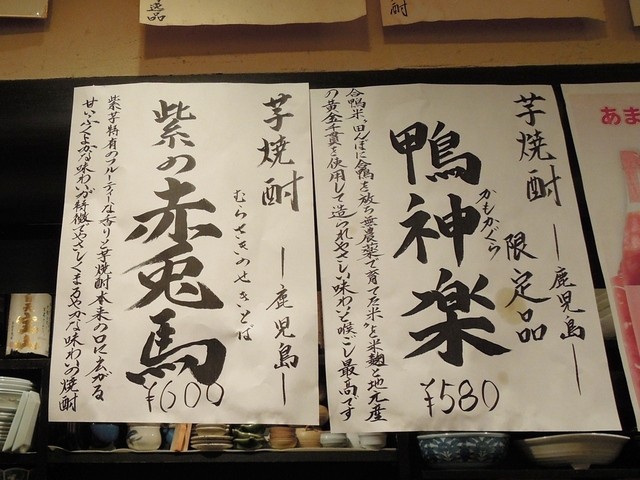 逸品
酎
あま
芋焼酎
―鹿児島―
限定品
かもかぐら
鴨神楽
¥580
合鴨米、田んぼに合鴨を放ち無農薬で育てた米を米麹と地元産
の黄金千貫を使用して造られやさしい味わいと喉ごし最高です
芋焼酎
―鹿児島―
むらさきのせきとば
紫の赤兎馬
¥600
紫芋特有のフルーティーな香りと芋焼酎本来の口に広がる
甘いふくよかな味わいが特徴でやさしくまろやかな味わいの焼酎